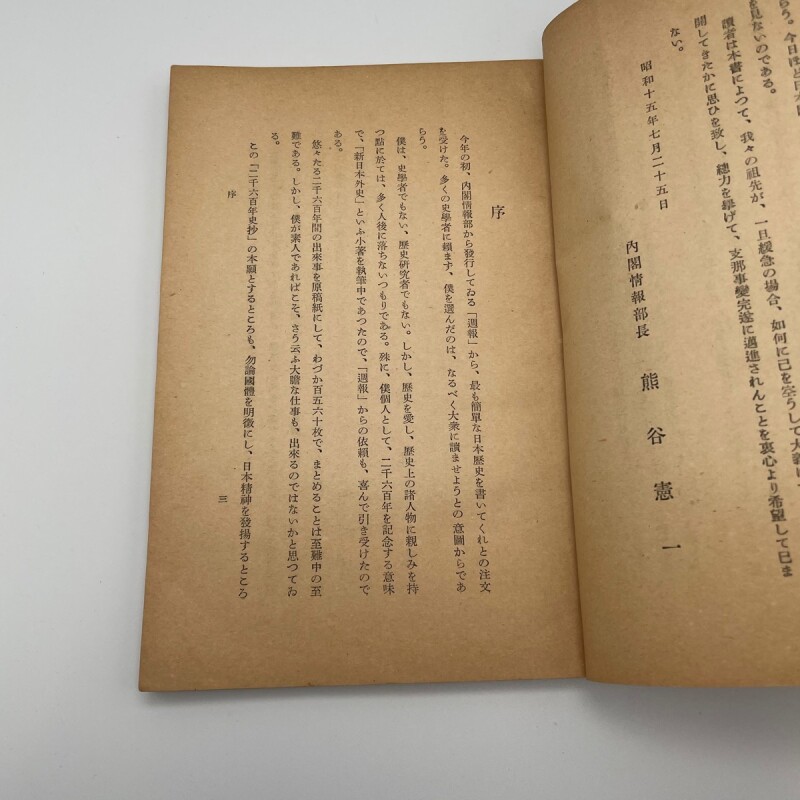 らう。今日ほど日本
を見ないのである。
讀者は本書によつて、我々の祖先が、一旦緩急の場合、如何に己を空うして大義に
開してきたかに思ひを致し、總力を擧げて、支那事變完遂に邁進されんことを衷心より希望して已ま
ない。
昭和十五年七月二十五日
內閣情報部長 熊谷憲一
序
今年の初、內閣情報部から發行してゐる「週報」から、最も簡單な日本歷史を書いてくれとの注文
を受けた。多くの史學者に賴まず、僕を選んだのは、なるべく大衆に讀ませようとの意圖からであ
らう。
僕は、史學者でもない、歷史硏究者でもない。しかし、歷史を愛し、歷史上の諸人物に親しみを持
つ點に於ては、多く人後に落ちないつもりである。殊に、僕個人として、二千六百年を記念する意味
で、「新日本外史」といふ小著を執筆中であつたので、「週報」からの依賴も、喜んで引き受けたので
ある。
悠々たる二千六百年間の出來事を原稿紙にして、わづか百五六十枚で、まとめることは至難中の至
難である。しかし、僕が素人であればこそ、さう云ふ大膽な仕事も、出來るのではないかと思つてゐ
る。
この「二千六百年史抄」の本願とするところも、勿論國體を明徵にし、日本精神を發揚するところ
序
三